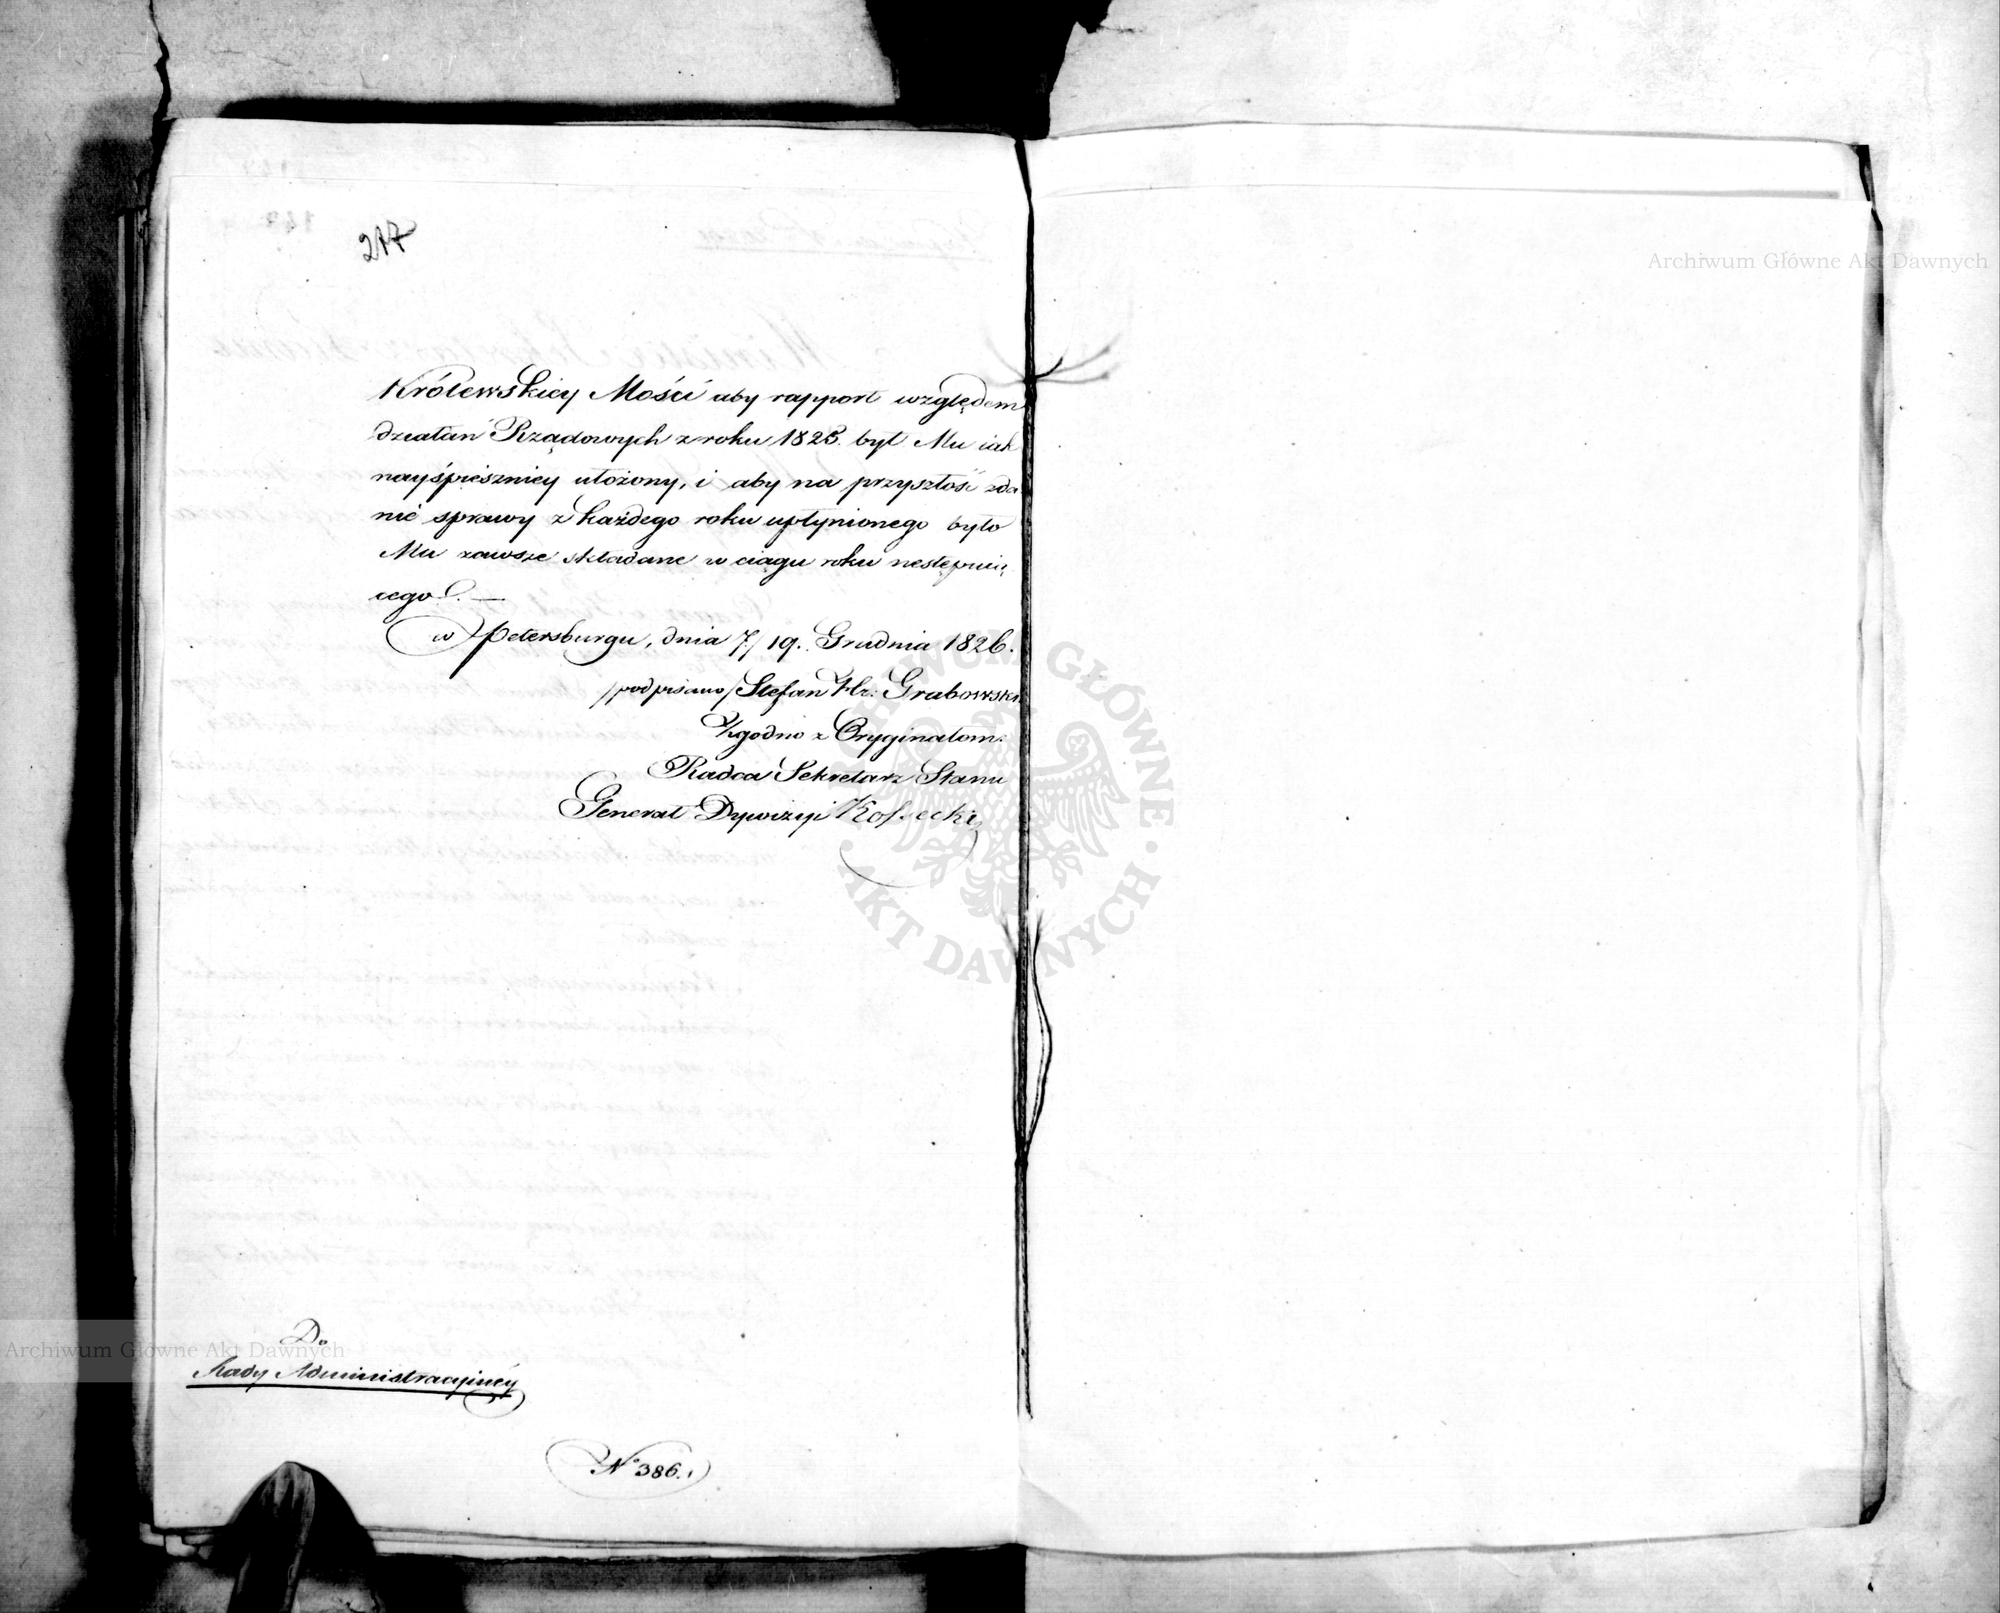 217
Królewskiey Mości aby rapport względem
działań Rządowych z roku 1825. był Mu iak
nayśpieszniey ułożony, i aby na przyszłość zda
nie sprawy z każdego roku upłynionego było
Mu zawsze składane w ciągu roku następuią
cego. —
w Petersburgu, dnia 7/19. Grudnia 1826.
/podpisano/ Stefan Hr: Grabowski
Zgodno z Oryginałem:
Radca Sekretarz Stanu
Generał Dywizyi Kossecki
Do
Rady Administracyiney
No 386.
Archiwum Główne Akt Dawnych
Archiwum Główne Akt Dawnych
ARCHIWUM GŁÓWNE · AKT DAWNYCH ·